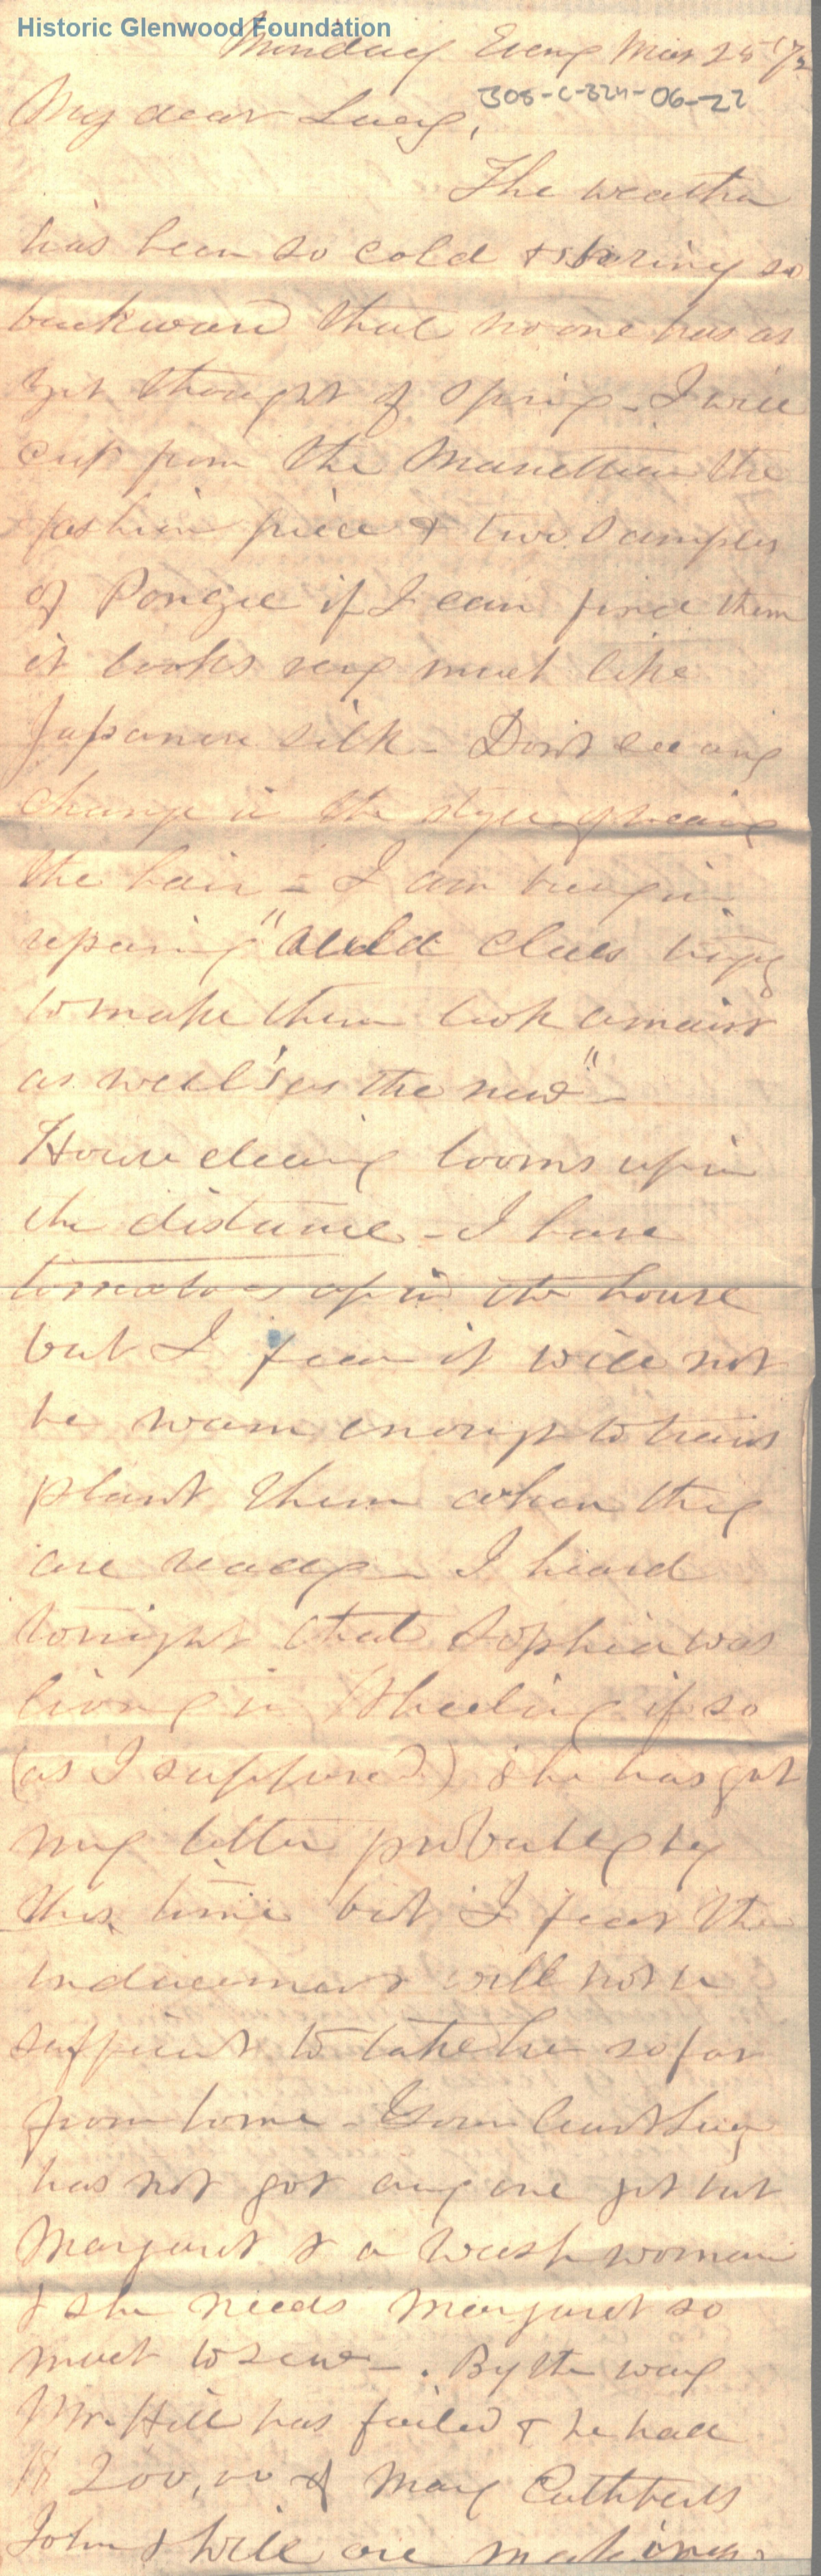 Historic Glenwood Foundation
Monday Eveng Mar 25 '72
308-C-324-06-22
My dear Lucy,
The weather
has been so cold & spring so
backward that no one has as
yet thought of spring - I will
cut from the Mariettian the
fashion piece & two samples
of Pongee if I can find them
it looks very much like
Japanese silk - Dont see any
change in the style of wearing
the hair - I am busy in
repairing "Auld claes trying
to make them look amaist
as weel's as the new" -
House cleaning looms up in
the distance - I have
tomatoes up in the house
but I fear it will not
be warm enough to trans
plant them when they
are ready - I heard
tonight that Sophia was
living in Wheeling if so
(as I supposed) she has got
my letter probably by
this time but I fear the
inducement will not be
sufficient to take her so far
from home - Your Aunt Lucy
has not got any one yet but
Margaret & a wash woman
& she needs Margaret so
much to sew - . By the way
Mr. Hill has failed & he had
200,00 of Mary Cuthberts
John & Will are making